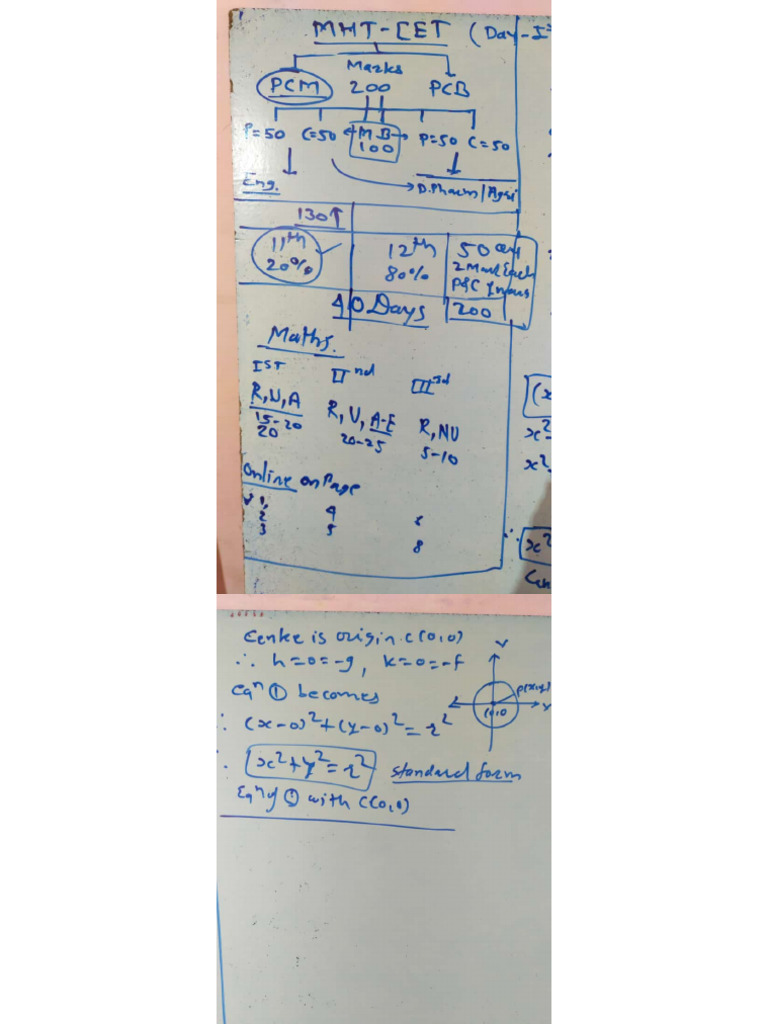 MHT-CET (Day-I
Marks
PCM 200 PCB
P=50 C=50 M B P=50 C=50
100
Eng. D.Pharm/Agri
130↑
11th 12th 50 Qu
20% 80% 2 Mark Each
40 Days 200
Maths.
IST IInd IIIrd
R,U,A R,U,A-E R,NU
15-20 20-25 5-10
20
Online on Page
1,
2 4
3 5
8
(x
x²
x²
∴ x²
Centre is origin. C(0,0)
∴ h=0=-g, k=0=-f
Eqⁿ ① becomes
∴ (x-0)²+(y-0)²=r²
∴ x²+y²=r² standard form
Eqⁿ of ① with C(0,0)
Y
P(x,y)
(0,0
X